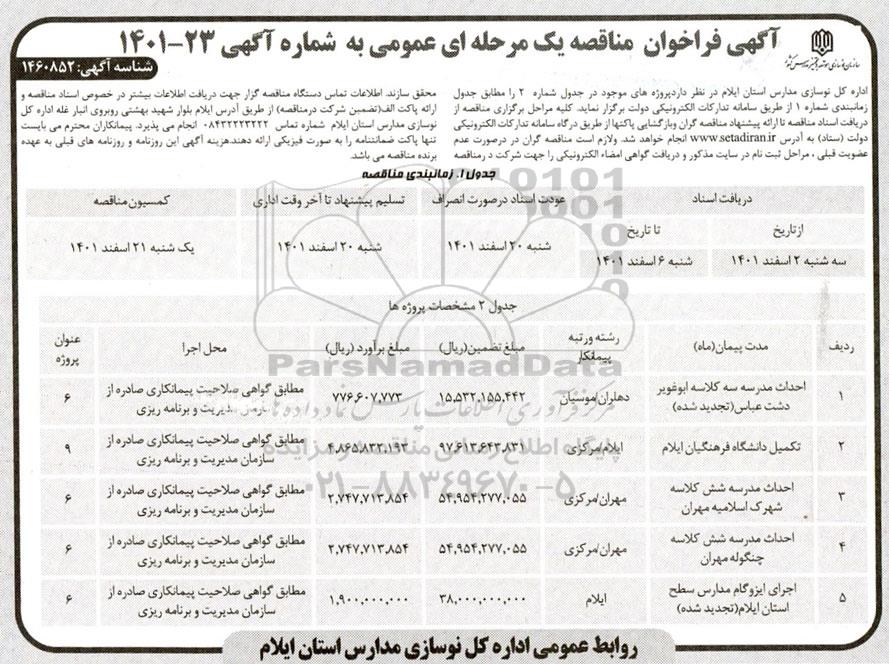 آگهی فراخوان مناقصه یک مرحله ای عمومی به شماره آگهی ۲۳-۱۴۰۱
شناسه آگهی: ۱۴۶۰۸۵۲
اداره کل نوسازی مدارس استان ایلام در نظر داردپروژه های موجود در جدول شماره ۲ را مطابق جدول
زمانبندی شماره ۱ از طریق سامانه تدارکات الکترونیکی دولت برگزار نماید. کلیه مراحل برگزاری مناقصه از
دریافت اسناد مناقصه تا ارائه پیشنهاد مناقصه گران وبازگشایی پاکتها از طریق درگاه سامانه تدارکات الکترونیکی
دولت (ستاد) به آدرس www.setadiran.ir انجام خواهد شد. ولازم است مناقصه گران در درصورت عدم
عضویت قبلی ، مراحل ثبت نام در سایت مذکور و دریافت گواهی امضاء الکترونیکی را جهت شرکت د رمناقصه
محقق سازند. اطلاعات تماس دستگاه مناقصه گزار جهت دریافت اطلاعات بیشتر در خصوص اسناد مناقصه و
ارائه پاکت الف(تضمین شرکت درمناقصه) از طریق آدرس ایلام بلوار شهید بهشتی روبروی انبار غله اداره کل
نوسازی مدارس استان ایلام شماره تماس ۰۸۴۳۲۲۲۳۲۲۲ انجام می پذیرد. پیمانکاران محترم می بایست
تنها پاکت ضمانتنامه را به صورت فیزیکی ارائه دهند.هزینه آگهی این روزنامه و روزنامه های قبلی به عهده
برنده مناقصه می باشد.
جدول۱. زمانبندی مناقصه
دریافت اسناد عودت اسناد درصورت انصراف تسلیم پیشنهاد تا آخر وقت اداری کمسیون مناقصه
ازتاریخ تا تاریخ
سه شنبه ۲ اسفند ۱۴۰۱ شنبه ۶ اسفند ۱۴۰۱ شنبه ۲۰ اسفند ۱۴۰۱ شنبه ۲۰ اسفند ۱۴۰۱ یک شنبه ۲۱ اسفند ۱۴۰۱
جدول ۲ مشخصات پروژه ها
ردیف مدت پیمان(ماه) رشته ورتبه پیمانکار مبلغ تضمین(ریال) مبلغ برآورد (ریال) محل اجرا عنوان پروژه
۱ احداث مدرسه سه کلاسه ابوغویر دشت عباس(تجدید شده) دهلران/موسیان ۱۵,۵۳۲,۱۵۵,۴۴۲ ۷۷۶,۶۰۷,۷۷۳ مطابق گواهی صلاحیت پیمانکاری صادره از سازمان مدیریت و برنامه ریزی ۶
۲ تکمیل دانشگاه فرهنگیان ایلام ایلام/مرکزی ۹۷,۶۱۳,۶۴۳,۸۳۱ ۴,۸۶۵,۸۳۲,۱۹۳ مطابق گواهی صلاحیت پیمانکاری صادره از سازمان مدیریت و برنامه ریزی ۹
۳ احداث مدرسه شش کلاسه شهرک اسلامیه مهران مهران/مرکزی ۵۴,۹۵۴,۲۷۷,۰۵۵ ۲,۷۴۷,۷۱۳,۸۵۴ مطابق گواهی صلاحیت پیمانکاری صادره از سازمان مدیریت و برنامه ریزی ۶
۴ احداث مدرسه شش کلاسه چنگوله مهران مهران/مرکزی ۵۴,۹۵۴,۲۷۷,۰۵۵ ۲,۷۴۷,۷۱۳,۸۵۴ مطابق گواهی صلاحیت پیمانکاری صادره از سازمان مدیریت و برنامه ریزی ۶
۵ اجرای ایزوگام مدارس سطح استان ایلام(تجدید شده) ایلام ۳۸,۰۰۰,۰۰۰,۰۰۰ ۱,۹۰۰,۰۰۰,۰۰۰ مطابق گواهی صلاحیت پیمانکاری صادره از سازمان مدیریت و برنامه ریزی ۶
ParsNamadData
پایگاه اطلاع رسانی مناقصه و مزایده
۰۲۱-۸۸۳۴۹۶۷۰-۵
روابط عمومی اداره کل نوسازی مدارس استان ایلام